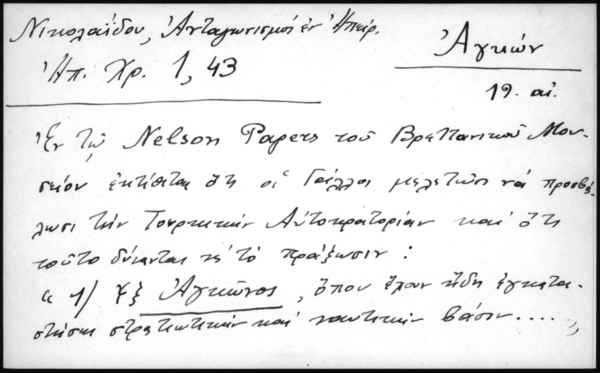 Νικολαΐδου, Ἀνταγωνισμοί ἐν Ἠπείρ.
Ἀγκών
Ἠπ. Χρ. 1, 43
19. αἰ.
Ἐν τῷ Nelson Papers τοῦ Βρεττανικοῦ Μου-
σείου ἐκτίθεται ὅτι οἱ Γάλλοι μελετῶσι νά προσβά-
λωσι τήν Τουρκικήν Αὐτοκρατορίαν καί ὅτι
τοῦτο δύνανται νά τό πράξωσιν :
« 1/ Ἐξ Ἀγκῶνος, ὅπου ἔχουν ἤδη ἐγκατα-
στήσει στρατιωτικήν καί ναυτικήν βάσιν.... »